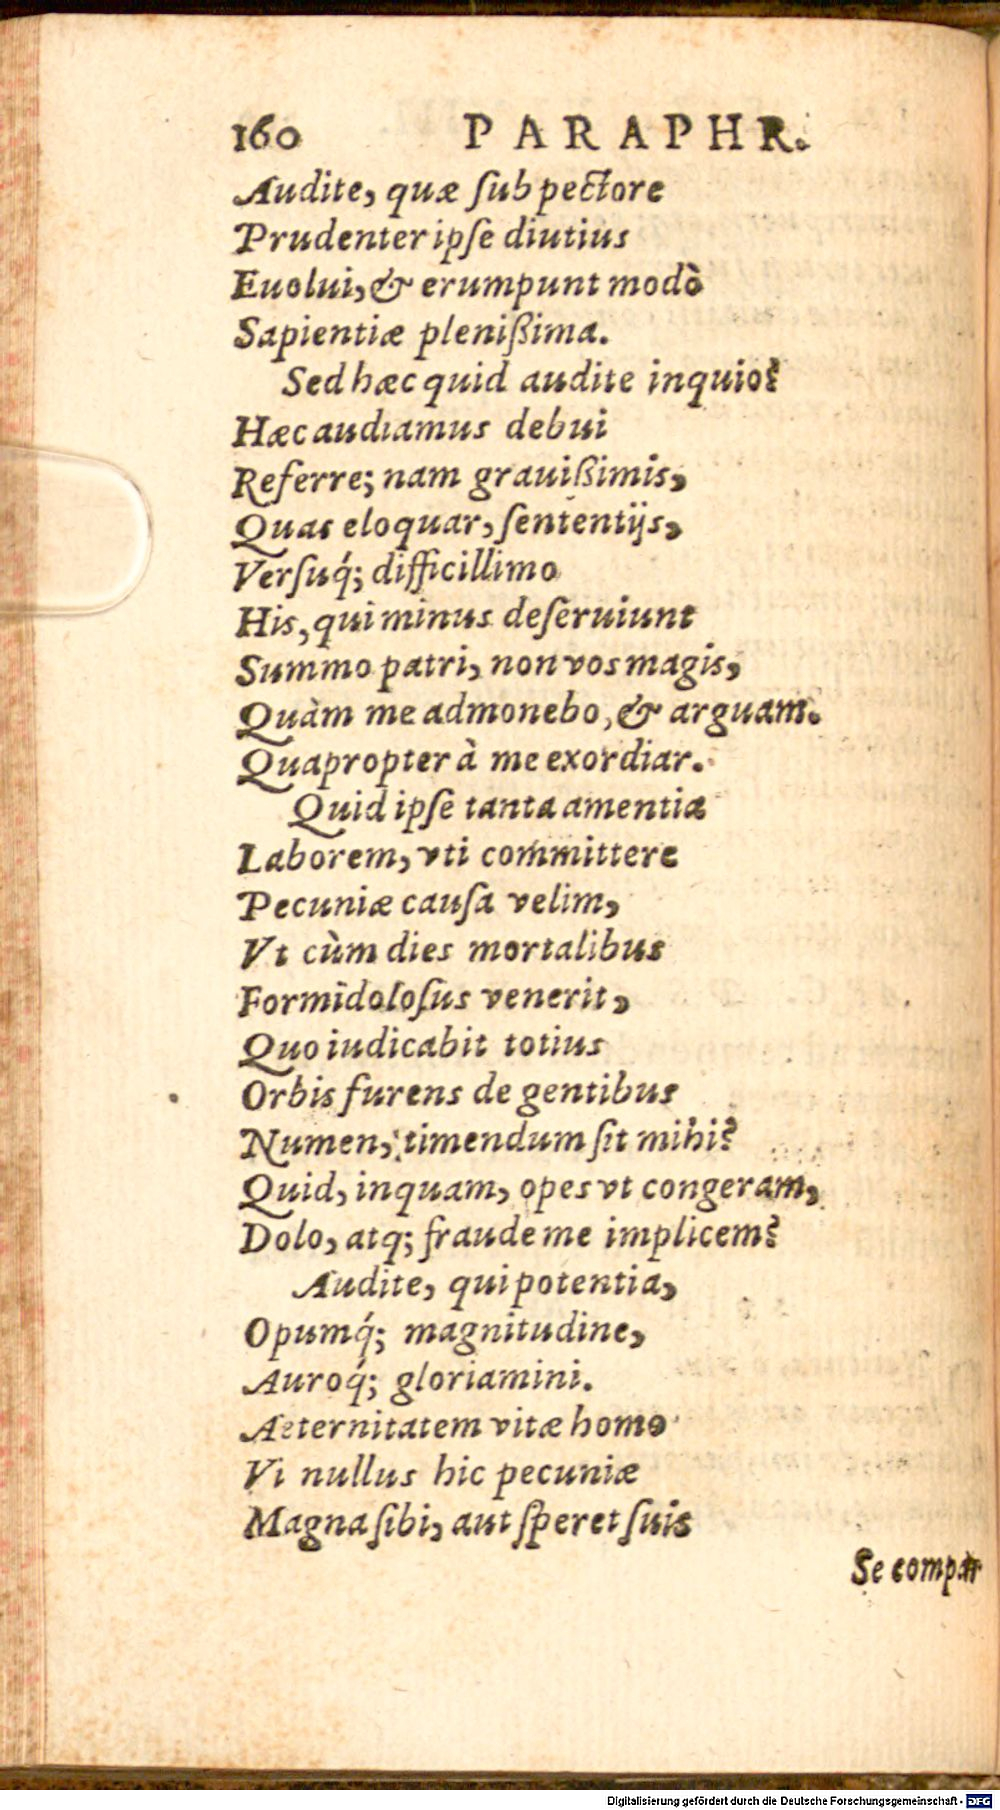 160 PARAPHR.
Audite, quæ ſub pectore
Prudenter ipſe diutius
Euolui, & erumpunt modò
Sapientiæ pleniſsima.
Sed hæc quid audite inquio?
Hæc audiamus debui
Referre; nam grauiſsimis,
Quas eloquar, ſententijs,
Verſuq́; difficillimo
His, qui minus deſeruiunt
Summo patri, non vos magis,
Quàm me admonebo, & arguam.
Quapropter à me exordiar.
Quid ipſe tanta amentia
Laborem, vti committere
Pecuniæ cauſa velim,
Vt cùm dies mortalibus
Formidoloſus venerit,
Quo iudicabit totius
Orbis furens de gentibus
Numen, timendum ſit mihi?
Quid, inquam, opes vt congeram,
Dolo, atq; fraude me implicem?
Audite, qui potentia,
Opumq́; magnitudine,
Auroq́; gloriamini.
Aeternitatem vitæ homo
Vi nullus hic pecuniæ
Magna ſibi, aut ſperet ſuis
Se compar
Digitalisierung gefördert durch die Deutsche Forschungsgemeinschaft - DFG